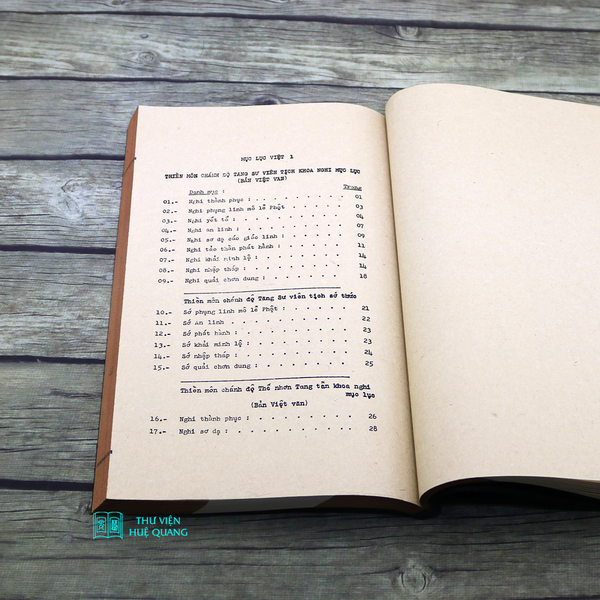 MỤC LỤC VIỆT 1
THIỀN MÔN CHÁNH ĐỘ TANG SƯ VIÊN TỊCH KHOA NGHI MỤC LỤC
(BẢN VIỆT VĂN)
Danh mục : Trang
01.- Nghi thành phục : . . . . . . . . . 01
02.- Nghi phụng linh mô lễ Phật : . . . . . . 03
03.- Nghi yết tổ : . . . . . . . . . . 04
04.- Nghi an linh : . . . . . . . . . . 07
05.- Nghi sơ dạ cáo giác linh : . . . . . . . 09
06.- Nghi tảo thần phát hành : . . . . . . . 11
07.- Nghi khải minh lộ : . . . . . . . . 14
08.- Nghi nhập tháp : . . . . . . . . . 14
09.- Nghi quải chơn dung : . . . . . . . . 18
Thiền môn chánh độ Tăng Sư viên tịch sớ thức
10.- Sớ phụng linh mô lễ Phật : . . . . . . 21
11.- Sớ an linh . . . . . . . . . . 22
12.- Sớ phát hành : . . . . . . . . . 23
13.- Sớ khải minh lộ : . . . . . . . . 23
14.- Sớ nhập tháp : . . . . . . . . . 24
15.- Sớ quải chơn dung : . . . . . . . . 25
Thiền môn chánh độ Thế nhơn Tang tận khoa nghi
mục lục
(Bản Việt văn)
16.- Nghi thành phục : . . . . . . . . 26
17.- Nghi sơ dạ : . . . . . . . . . . 28
THƯ VIỆN
HUỆ QUANG